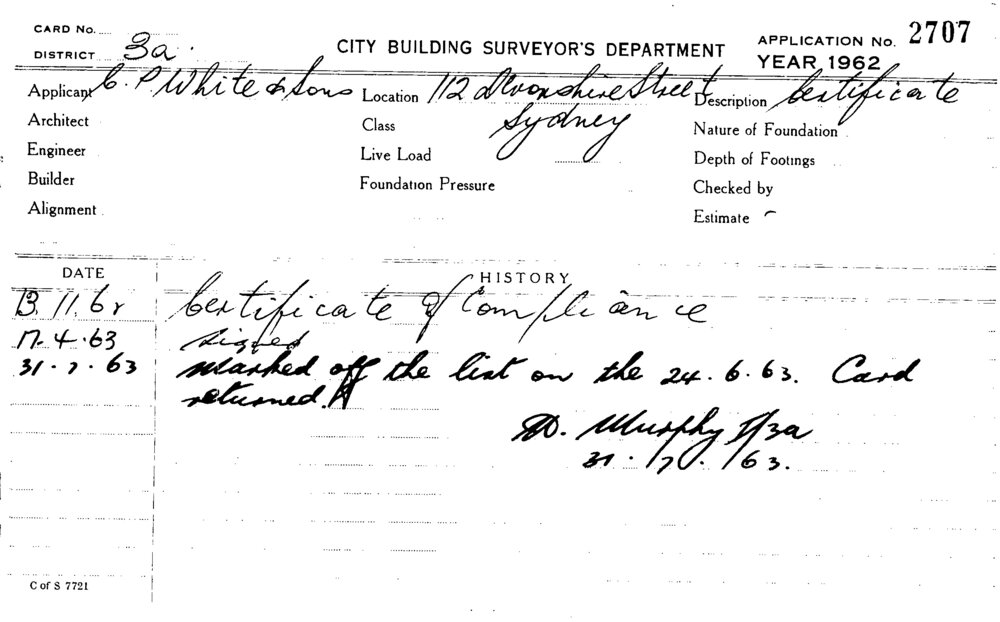 CARD No.
DISTRICT 3a.
CITY BUILDING SURVEYOR'S DEPARTMENT
APPLICATION No. 2707
YEAR 1962
Applicant C. P. White & Sons
Location 112 Devonshire Street
Sydney
Description Certificate
Architect
Class
Nature of Foundation
Engineer
Live Load
Depth of Footings
Builder
Foundation Pressure
Checked by
Alignment
Estimate -
DATE
HISTORY
13.11.62 Certificate of Compliance
17.4.63 signed
31.7.63 marked off the list on the 24.6.63. Card
returned.
Murphy I/3a
31.7./63.
C of S 7721